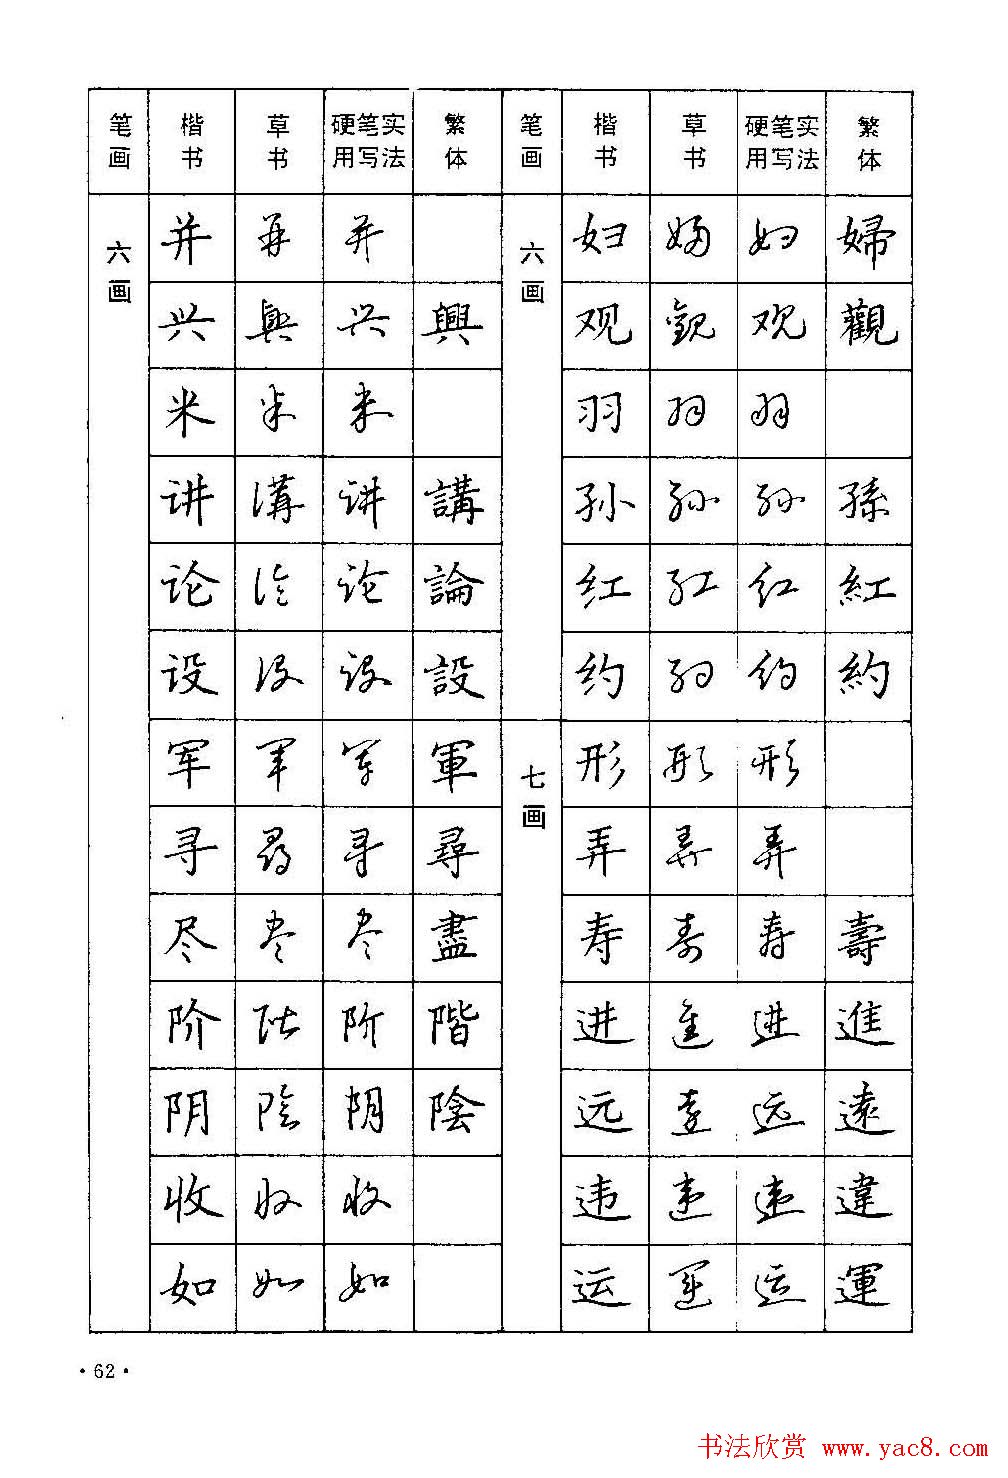 笔画 楷书 草书 硬笔实用写法 繁体 笔画 楷书 草书 硬笔实用写法 繁体
六画 并 并 并 六画 妇 妇 妇 婦
兴 兴 兴 興 观 观 观 觀
米 米 米 羽 羽 羽
讲 讲 讲 講 孙 孙 孙 孫
论 论 论 論 红 红 红 紅
设 设 设 設 约 约 约 約
军 军 军 軍 七画 形 形 形
寻 寻 寻 尋 弄 弄 弄
尽 尽 尽 盡 寿 寿 寿 壽
阶 阶 阶 階 进 进 进 進
阴 阴 阴 陰 远 远 远 遠
收 收 收 违 违 违 違
如 如 如 运 运 运 運
·62·
书法欣赏 www.yac8.com